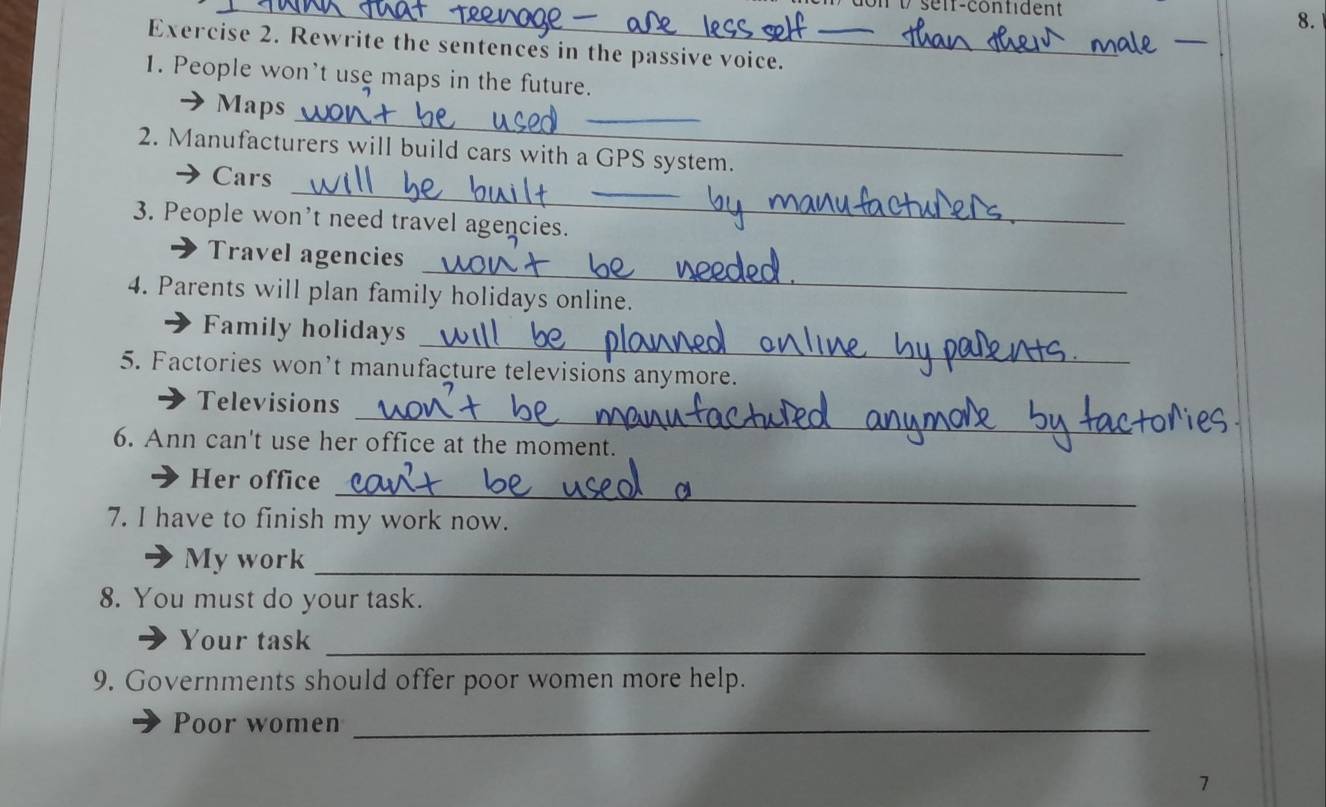 self-confident
I think that teenage — are less self — than their male —.
8.
Exercise 2. Rewrite the sentences in the passive voice.
1. People won't use maps in the future.
→ Maps won't be used ——
2. Manufacturers will build cars with a GPS system.
→ Cars will be built —— by manufacturers.
3. People won't need travel agencies.
→ Travel agencies won't be needed.
4. Parents will plan family holidays online.
→ Family holidays will be planned online by parents.
5. Factories won't manufacture televisions anymore.
→ Televisions won't be manufactured anymore by factories.
6. Ann can't use her office at the moment.
→ Her office can't be used a
7. I have to finish my work now.
→ My work
8. You must do your task.
→ Your task
9. Governments should offer poor women more help.
→ Poor women
7